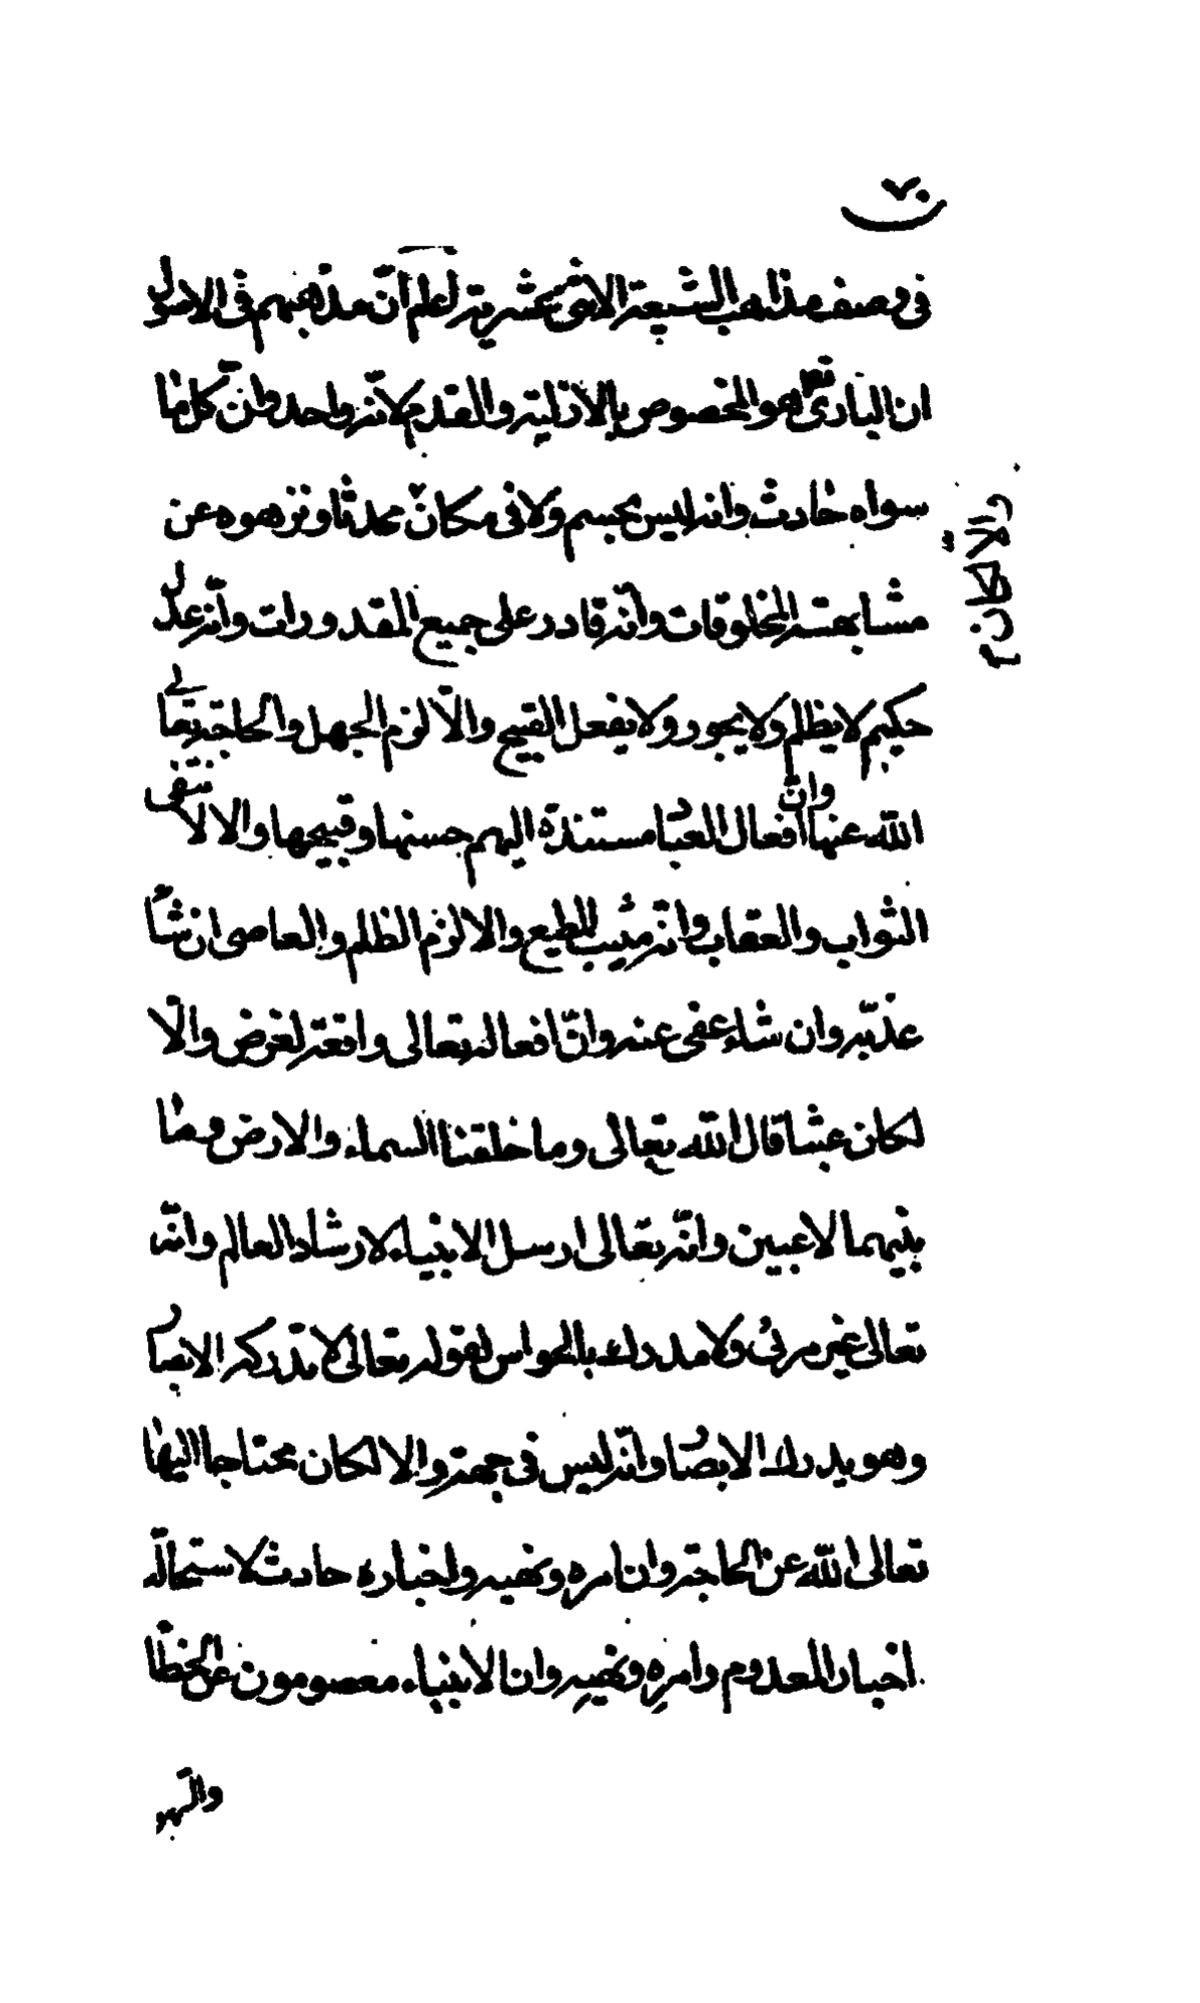 ٧٠
فى وصف مذاهب الشيعة الاثنى عشرية لعلم انّ مذهبهم فى الاصول
ان البارئ تعالى هو المخصوص بالازلية والقدم لانّه واحد وانّ كل ما
سواه حادث وانه ليس بجسم ولا فى مكان محدثا ونزهوه عن
مشابهته المخلوقات وانّه قادر على جميع المقدورات وانّه عدل
حكيم لا يظلم ولا يجور ولا يفعل القبيح والّا لزم الجهل والحاجة تعالى
الله عنها وانّ افعال العباد مستندة اليهم حسنها وقبيحها والا لانتفى
الثواب والعقاب وانّه مثيب للمطيع والا لزم الظلم والعاصى ان شاء
عذّبه وان شاء عفى عنه وانّ افعاله تعالى واقعة لغرض والّا
لكان عبثا قال الله تعالى وما خلقنا السماء والارض وما
بينهما لاعبين وانّه تعالى ارسل الانبياء لارشاد العالم وانّه
تعالى غير مرئى ولا مدرك بالحواس لقوله تعالى لا تدركه الابصار
وهو يدرك الابصار وانّه ليس فى جهة والا لكان محتاجا اليها
تعالى الله عن الحاجة وان امره ونهيه واخباره حادث لاستحالة
اخبار المعدوم وامره ونهيه وان الانبياء معصومون عن الخطأ
والسهو